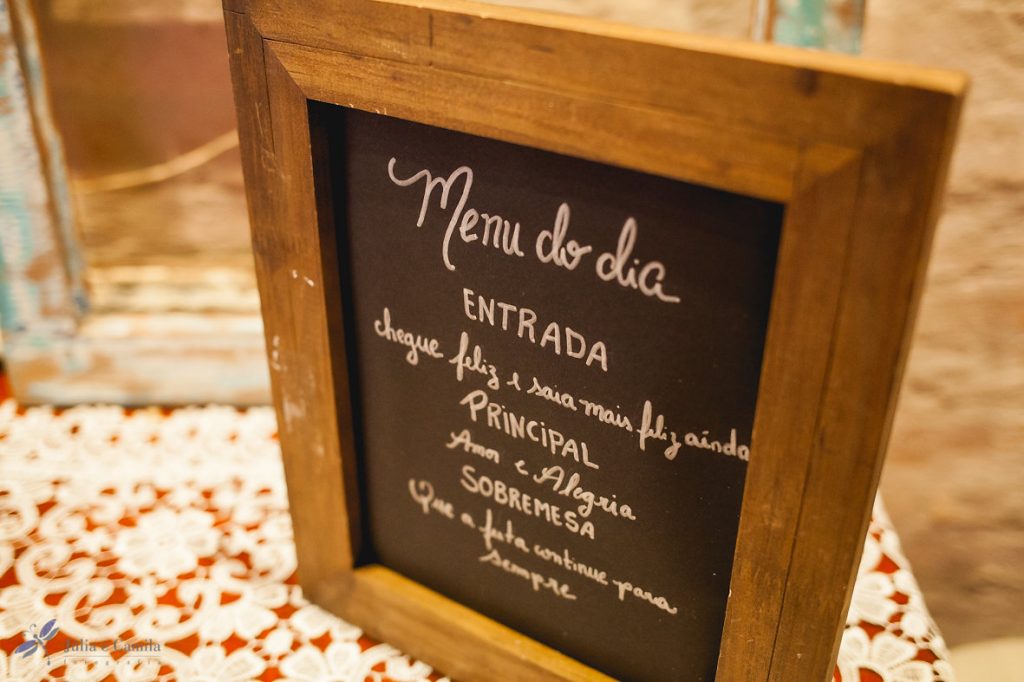 Menu do dia
ENTRADA
chegue feliz e saia mais feliz ainda
PRINCIPAL
Amor e Alegria
SOBREMESA
Que a festa continue para
sempre
Julia e Camila
fotografia